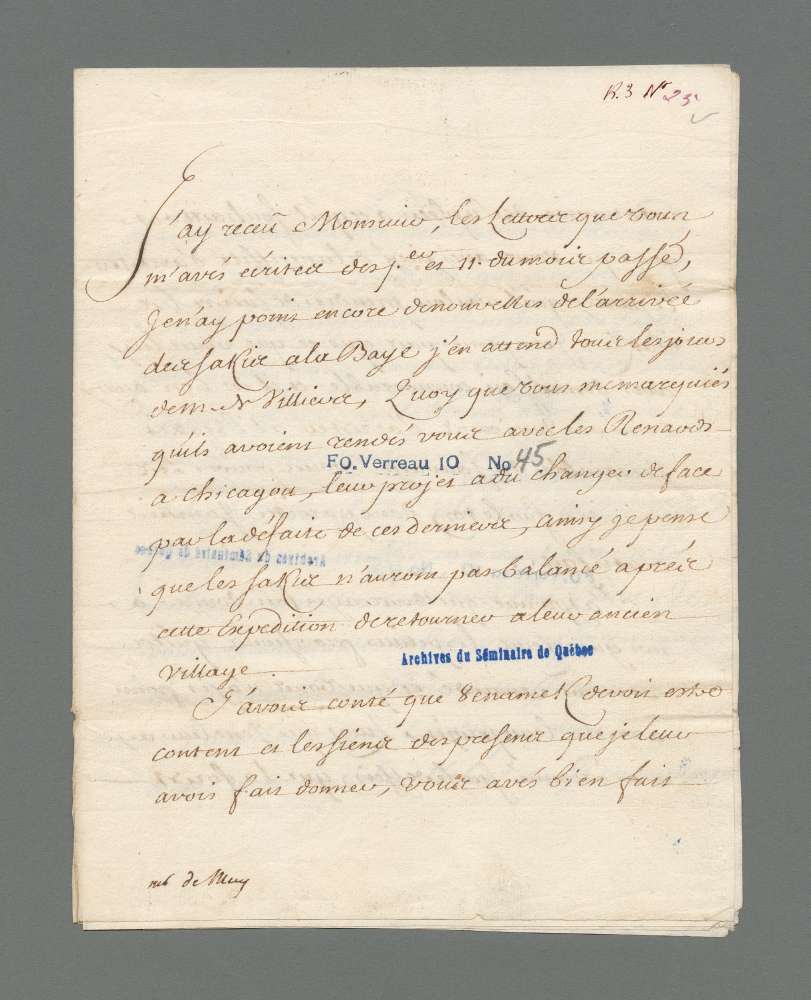 R.3 N.r 25
J'ay receu Monsieur, les Lettres que vous
m'avés écrites des p.er et 11. du mois passé,
Je n'ay point encore de nouvelles de l'arrivée
des Sakis a la Baye j'en attend tous les jours
de m. de Villiers, Quoy que vous me marquiés
qu'ils avoient rendés vous avec les Renards
FO. Verreau 10 No 45
a chicagou, leur projet a dû changer de face
par la défaite de ces derniers, ainsy je pense
Archives du Séminaire de Québec
que les Sakis n'auront pas balancé aprés
cette Expedition de retourner a leur ancien
Village.
Archives du Séminaire de Québec
J'avois conté que 8enamek devoit estre
content et les siens des presens que je leur
avois fait donner, vous avés bien fait
de Muy